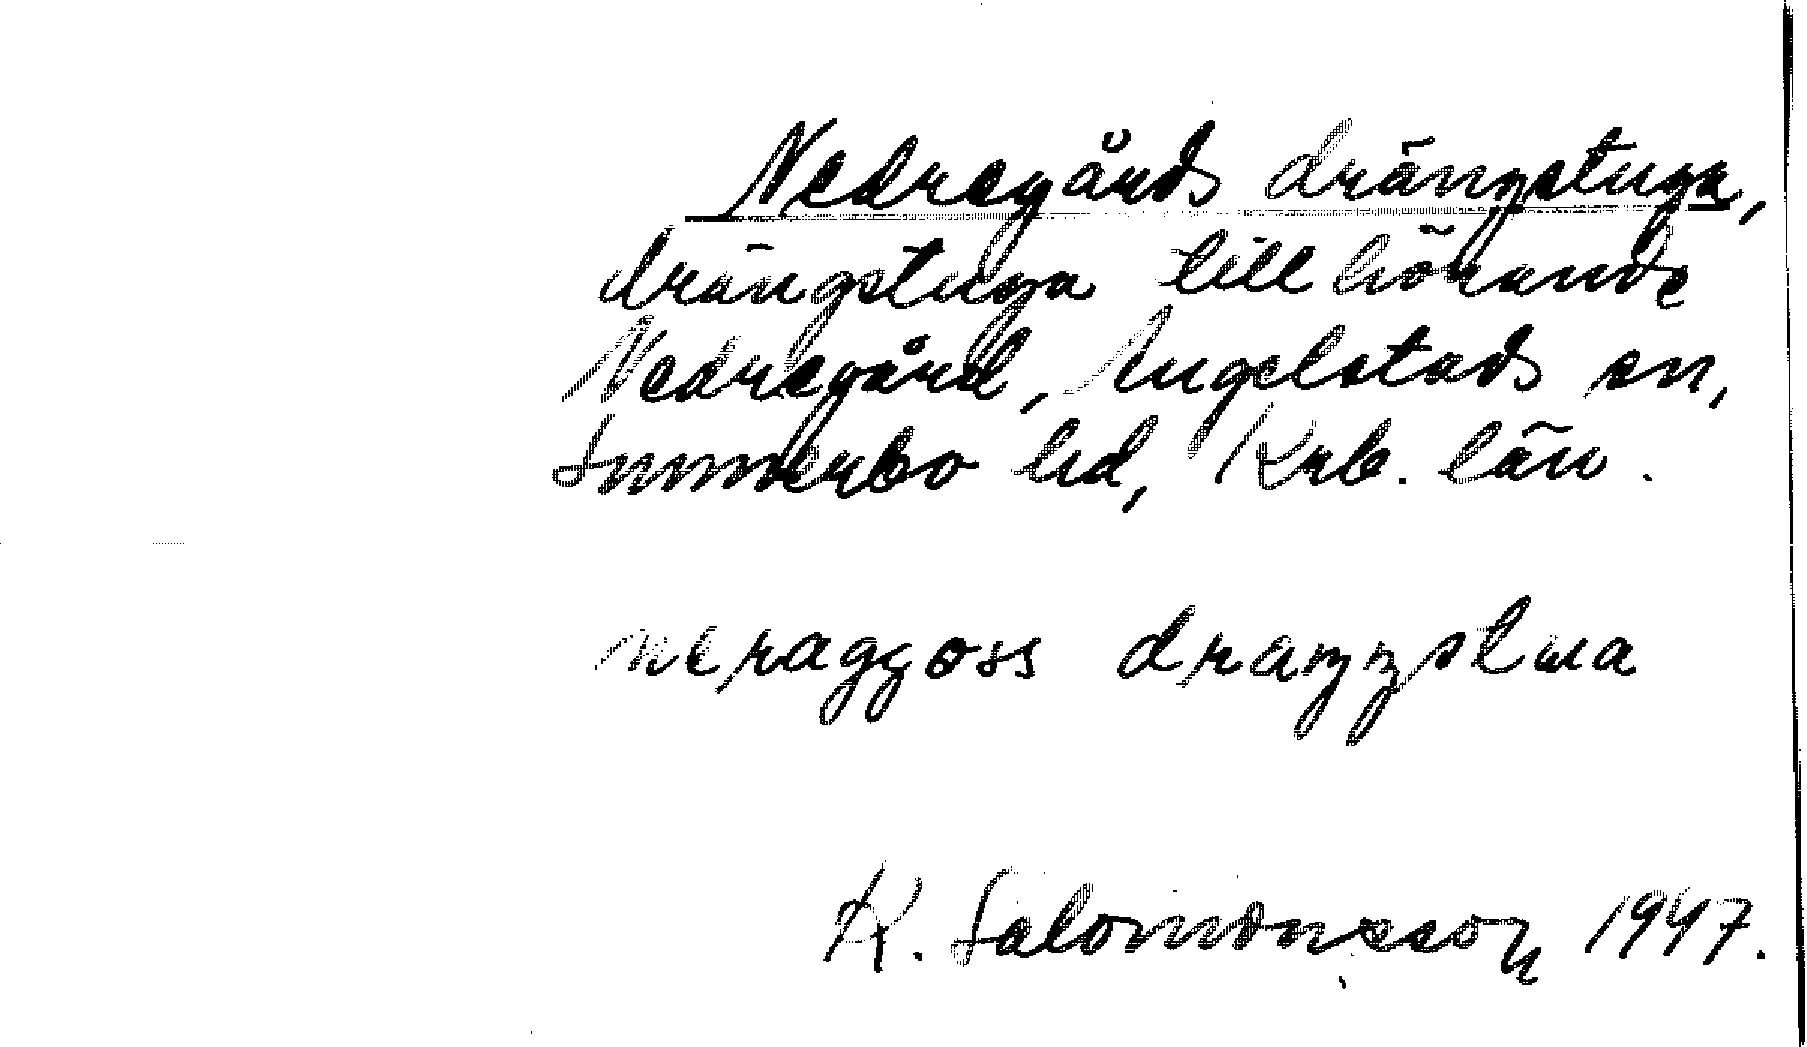 Nedregårds drängstuga,
drängstuga tillhörande
Nedregård, Angelstads sn,
Sunnerbo hd, Krb. län.
neraggoss draŋŋstua
K. Salomonsson 1947.